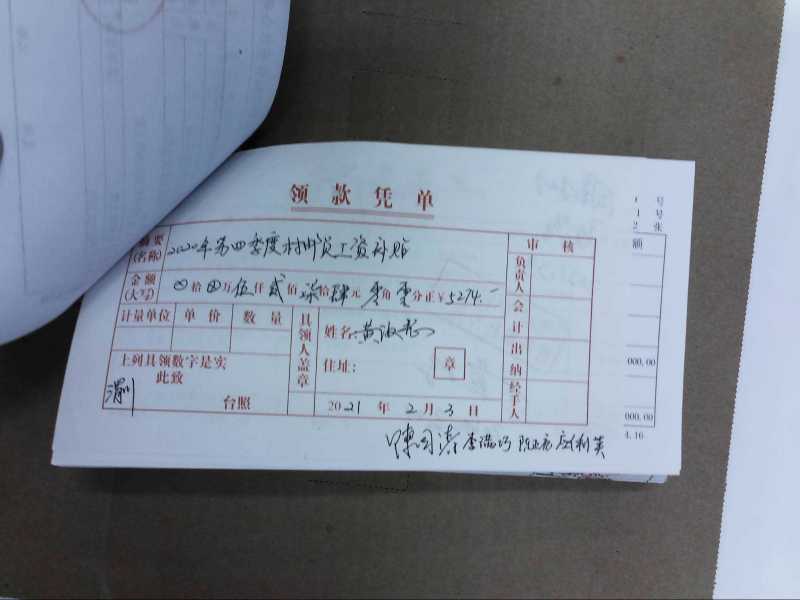 领款凭单
摘要(名称) 2020年第四季度村邮员工资补贴
审核
金额(大写) ⊗拾⊗万伍仟贰佰柒拾肆元零角零分正￥5274.—
负责人
计量单位 单价 数量
具领人盖章
姓名: 黄淑
会计
住址: 章
出纳
上列具领数字是实
此致
台照
2021年2月3日
经手人
陈国涛 李满巧
号
号
张
额
000.00
000.00
4.16